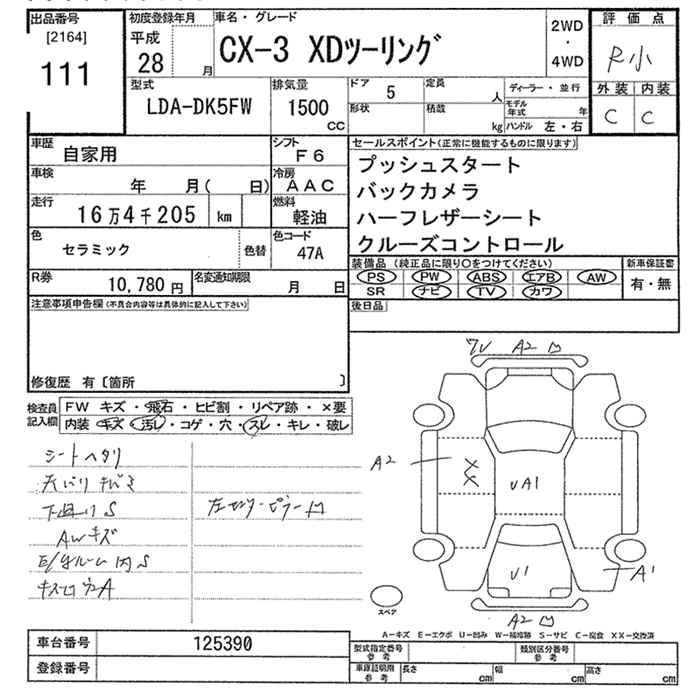 出品番号
[2164]
111
初度登録年月
平成
28 月
車名・グレード
CX-3 XDツーリング
2WD
・
4WD
評価点
R小
外装 内装
C C
型式
LDA-DK5FW
排気量
1500
CC
ドア
5
定員
人
形状
積載
kg
ディーラー・並行
モデル年式 年
ハンドル 左・右
車歴
自家用
シフト
F6
車検
年 月( 日)
冷房
AAC
走行
16万4千205 km
燃料
軽油
色
セラミック
色替
色コード
47A
R券
10,780 円
名変通知期限
月 日
セールスポイント(正常に機能するものに限ります)
プッシュスタート
バックカメラ
ハーフレザーシート
クルーズコントロール
装備品 (純正品に限り○をつけてください)
PS PW ABS エアB AW
SR ナビ TV カワ
新車保証書
有・無
後日品
注意事項申告欄(不具合内容等は具体的に記入して下さい)
修復歴 有〔箇所 〕
検査員記入欄
FW キズ・飛石・ヒビ割・リペア跡・×要
内装・キズ・汚レ・コゲ・穴・スレ・キレ・破レ
シートヘタリ
下廻りS
AWキズ
E/gルーム内S
A2
A2
XX
UA1
U1
A1
A2
スペア
A-キズ E-エクボ U-凹み W-補修跡 S-サビ C-腐食 XX-交換済
車台番号
125390
登録番号
型式指定番号
参考
類別区分番号
参考
車庫証明用
参考
長さ cm
幅 cm
高さ cm